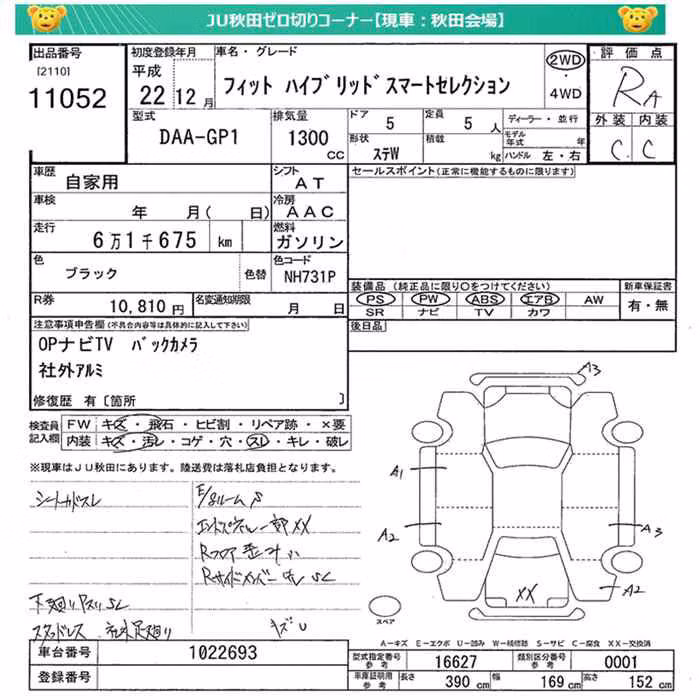 JU秋田ゼロ切りコーナー【現車：秋田会場】
出品番号 初度登録年月 車名・グレード 評価点
[2110] 平成 フィット ハイブリッドスマートセレクション 2WD ・ 4WD RA
11052 22 12月
型式 排気量 ドア 定員 ディーラー・並行 外装 内装
DAA-GP1 1300 CC 5 5人 モデル年式 年 C C
形状 積載
ステW kg ハンドル 左・右
車歴 シフト セールスポイント(正常に機能するものに限ります)
自家用 AT
車検 冷房
年 月( 日) AAC
走行 燃料
6万1千675 km ガソリン
色 カラーコード
ブラック 色替 NH731P 装備品 (純正品に限り○をつけてください) 新車保証書
PS PW ABS エアB AW 有・無
R券 名変通知期限 SR ナビ TV カワ
10,810円 月 日
注意事項申告欄(不具合内容等は具体的に記入して下さい) 後日品
OPナビTV バックカメラ
社外アルミ
修復歴 有〔箇所 〕
検査員記入欄 FW キズ・飛石・ヒビ割・リペア跡・×要
内装 キズ・汚レ・コゲ・穴・スレ・キレ・破レ
※現車はJU秋田にあります。陸送費は落札店負担となります。
A3
A1
A2 A3
XX A2
スペア
シートカドスレ
下廻リ サビ SL
スタッドレス 社外足廻リ キズU
A-キズ E-エクボ U-凹み W-補修跡 S-サビ C-腐食 XX-交換済
車台番号 1022693 型式指定番号 参考 16627 類別区分番号 参考 0001
登録番号 車庫証明用 参考 長さ 390 cm 幅 169 cm 高さ 152 cm